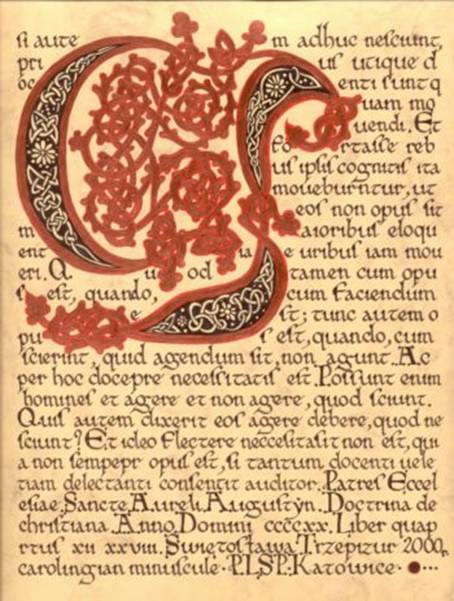 si aute m adhuc nesciunt,
pri us utique d
oc enti sunt q
uam mo
uendi. Et
Fo rtasse reb
us ipsis cognitis ita
moueburntur, ut
eos non opus sit
m aioribus eloqu
ent ia e uribus iam mou
eri. Q u od tamen cum opu
s est, quando, cum faciendum
e st; tunc autem o
pu s est, quando, cum
scierint, quid agendum sit, non agunt. Ac
per hoc docepre necessitatis est. Possunt enim
homines et agere et non agere, quod sciunt.
Quis autem dixerit eos agere debere, quod ne
sciunt? Et ideo flectere neccesitasit non est, qui
a non sempepr opus est, si tantum docenti uele
tiam delectanti consentit auditor. Patres Eccel
esiae. Sancte Aureli Augustyn. Doctrina de
christiana. Anno Domini ccccxx. Liber quap
rtus xii xxviii. Swietosława Trzepizur 2000,
carolingian minuscule · P.L.S.P. Katowice · ...